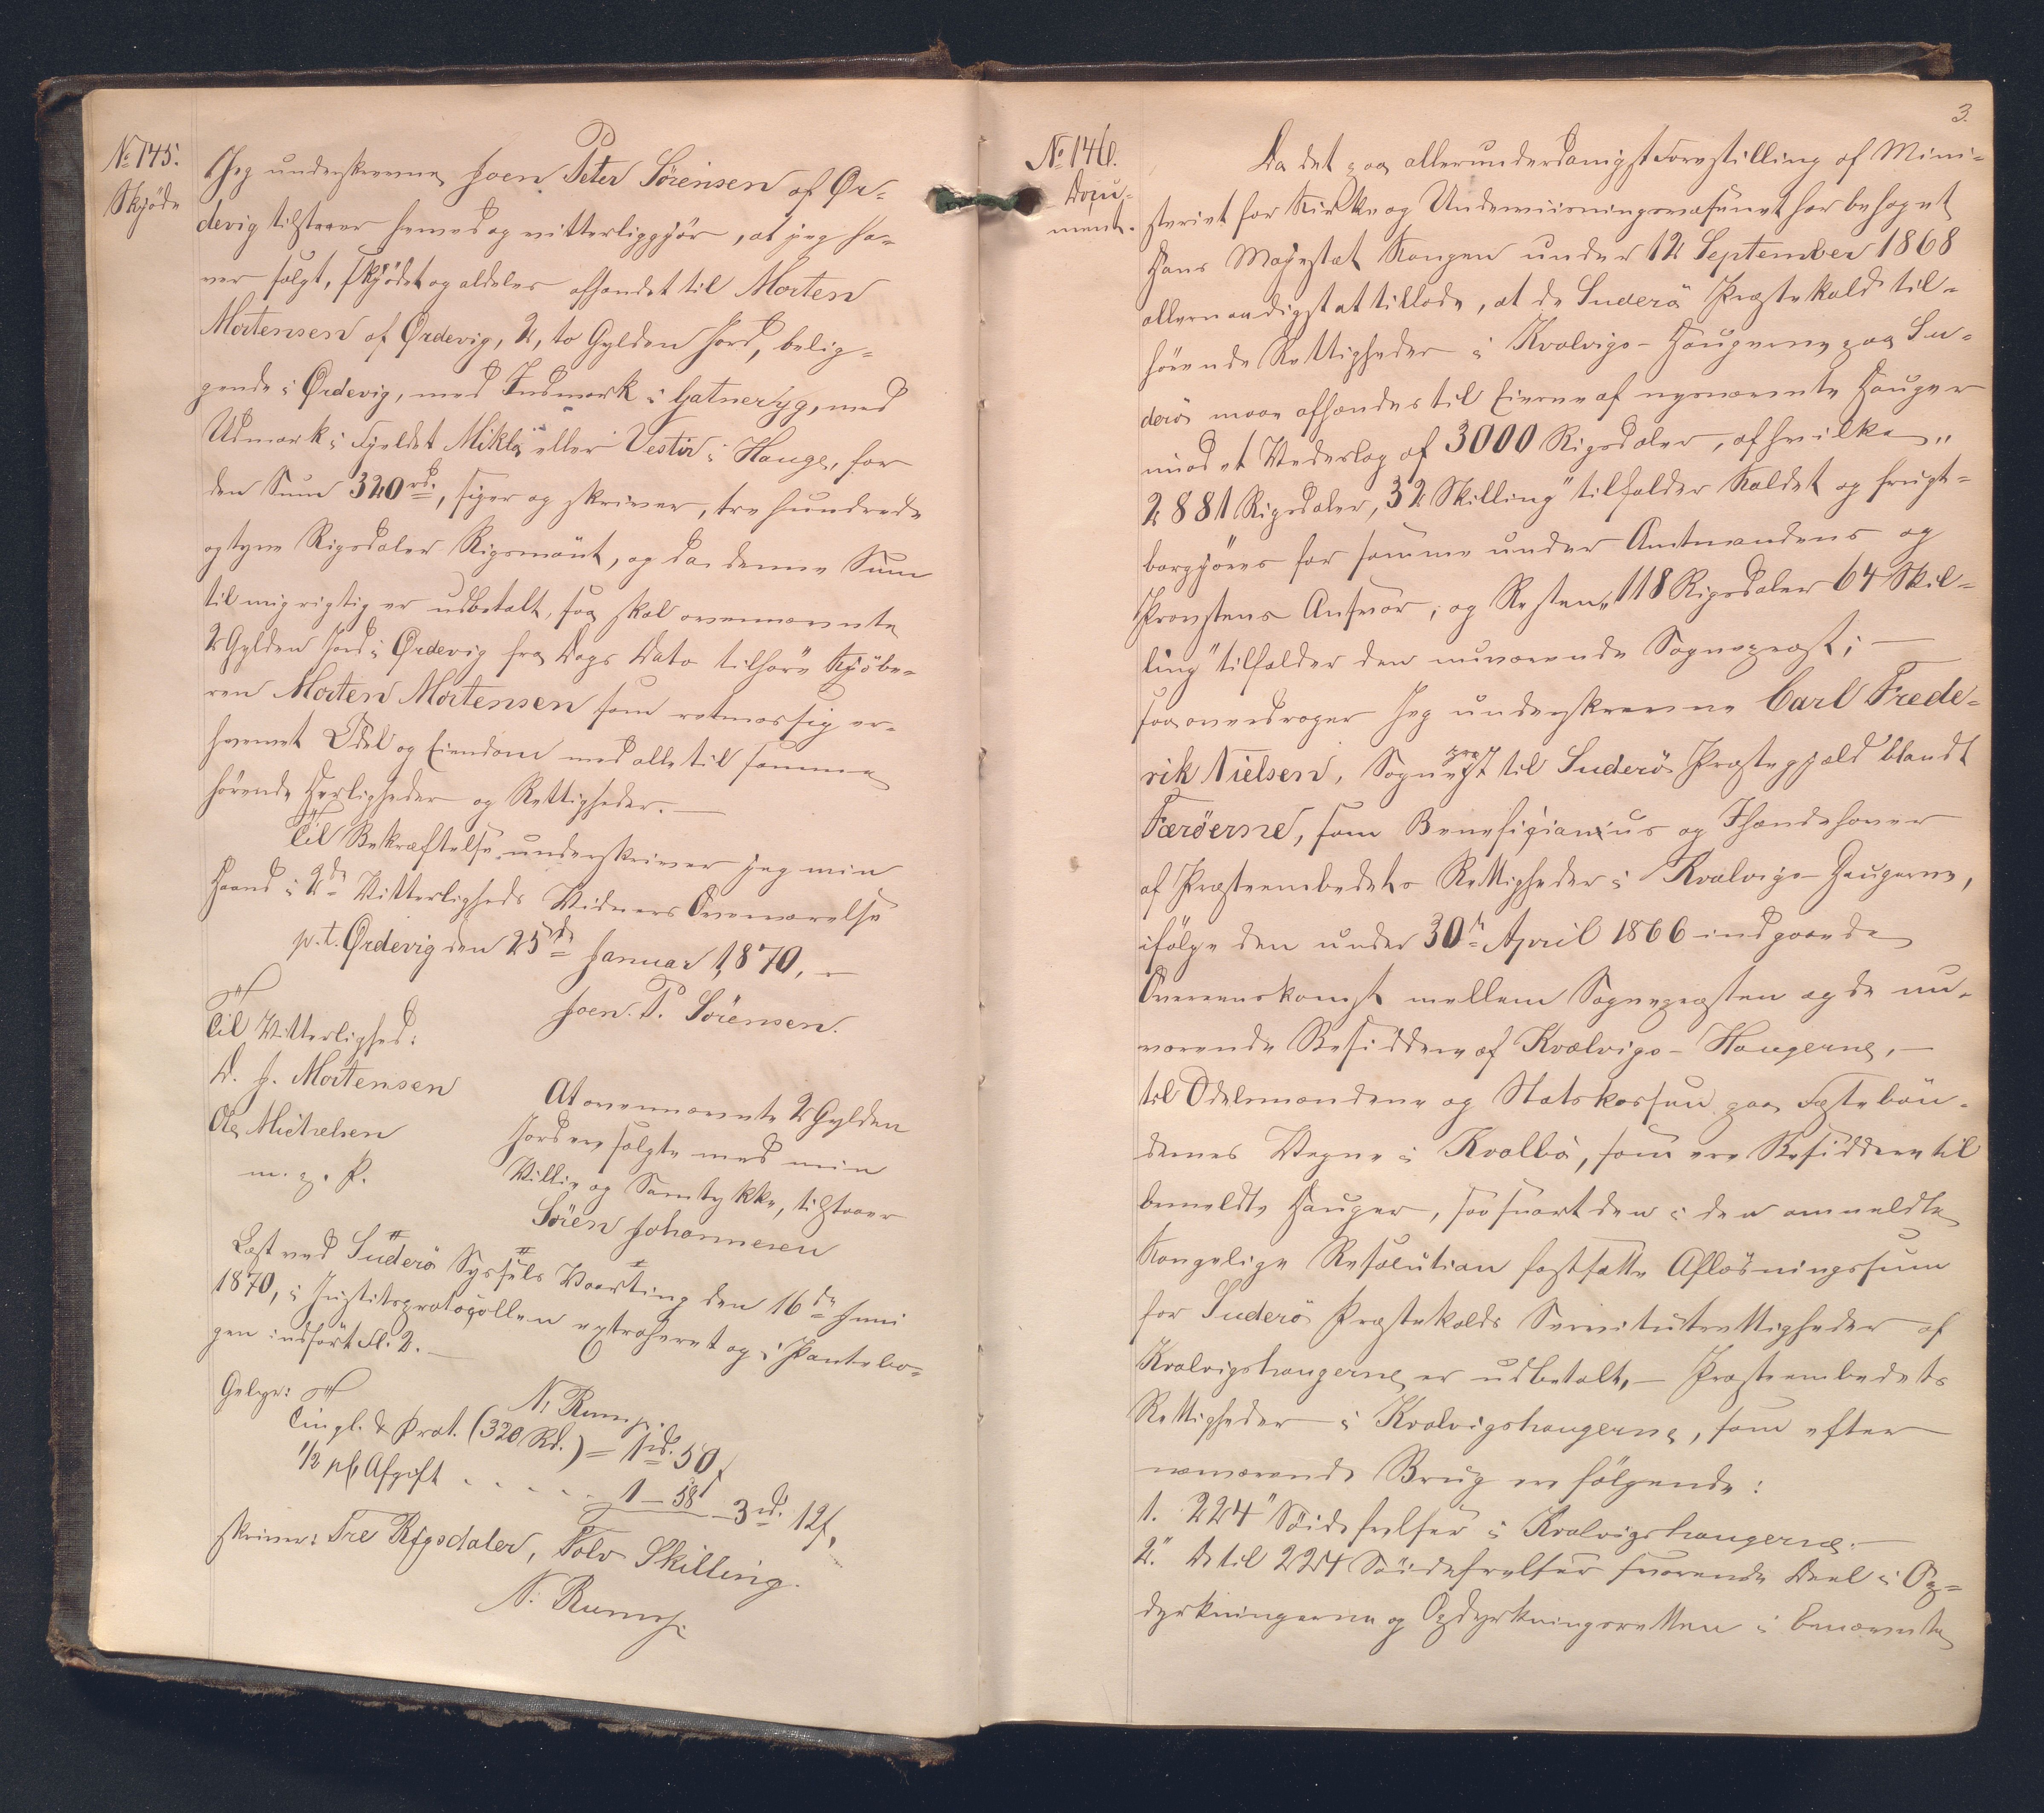 No 145.
Skjöde
Jeg underskrevne Joen Peter Sörensen af Ør-
devig tilstaaer herved og vitterliggjør, at jeg ha-
ver solgt, skjödet og aldeles afhændet til Morten
Mortensen af Ørdevig, 2, to Gylden Jord, belig-
gende i Ørdevig, med Indmark i Gatneryg, med
Udmark i Fjeldet Mikla eller Vestir i Hauge, for
den Sum 320 rd., siger og skriver, tre hundrede
og tyve Rigsdaler Rigsmönt, og da denne Sum
til mig rigtig er udbetalt, saa skal ovennævnte
2 Gylden Jord i Ørdevig fra Dags Dato tilhöre Kjöbe-
ren Morten Mortensen som retmæssig er-
hvervet Odel og Eiendom med alle til samme
hörende Herligheder og Rettigheder. —
Til Bekræftelse underskriver jeg min
Haand i 2de Vitterligheds Vidners Overværelse
p. t. Ørdevig den 25de Januar 1870. —
Joen. P. Sörensen.
Til Vitterlighed:
D. J. Mortensen
Ole Michelsen
m. p. P.
At ovennævnte 2 Gylden
Jord ere solgte med min
Villie og Samtykke, tilstaaer
Sören Johannesen
Læst ved Suderö Syssels Vaarting den 16de Juni
1870, i Justitsprotocollen extraheret og i Pantebo-
gen indfört Fl. 2. —
N. Rump.
Gebyr:
Tingl. & Prot. (320 Rd.) = 1 rd. 50 s
1/2 pCt Afgift . . . . . 1 — 58 s 3 rd. 12 s.
skriver: Tre Rigsdaler, Tolv Skilling.
N. Rump.
3.
No 146.
Docu-
ment.
Da det paa allerunderdanigst Forestilling af Mini-
steriet for Kirke og Underviisningsvæsenet har behaget
Hans Majestæt Kongen under 12 September 1868
allernaadigst at tillade, at de Suderö Præstekald til-
hörende Rettigheder i Kvalvigs-Haugerne paa Su-
derö maae afhændes til Eierne af nysnævnte Hauger
mod et Vederlag af 3000 Rigsdaler, af hvilke „
2881 Rigsdaler, 32 Skilling" tilfalder Kaldet og frugt-
bargjöres for samme under Amtmandens og
Provstens Ansvar, og Resten „118 Rigsdaler 64 Skil-
ling" tilfalder den nuværende Sognepræst; —
saa overdrager Jeg underskrevne Carl Frede-
rik Nielsen, Sognepræst til Suderö Præstegjæld blandt
Færöerne, som Beneficiarius og Ihændehaver
af Præsteembedets Rettigheder i Kvalvigs-Haugerne,
ifölge den under 30te April 1866 indgaaede
Overeenskomst mellem Sognepræsten og de nu-
værende Besiddere af Kvalvigs-Haugerne, —
til Odelsmændene og Statskassen paa Fæstebön-
dernes Vegne i Kvalbö, som ere Besiddere til
bemeldte Hauger, saasnart den i den anmeldte
Kongelige Resolution fastsatte Aflösningssum
for Suderö Præstekalds Servitutrettigheder af
Kvalvigshaugerne er udbetalt, — Præsteembedets
Rettigheder i Kvalvigshaugerne, som efter
nærværende Brug ere fölgende:
1. 224" Söidefrelser i Kvalvigshaugerne. —
2." De til 224 Söidefrelser svarende Deel i Op-
dyrkningerne og Opdyrkningsretten i benævnte